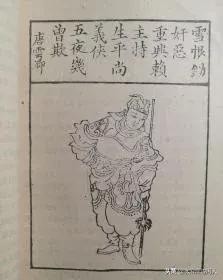 雪恨鋤
奸惡
重興賴
主持
生平尚
義俠
五夜幾
曾欺
唐雲卿